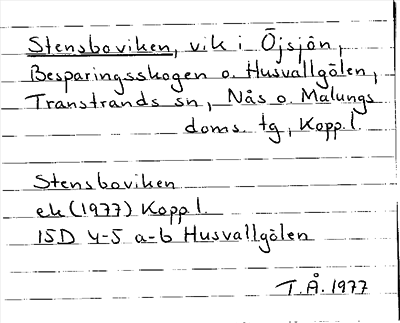 Stensboviken, vik i Öjsjön,
Besparingsskogen o. Husvallgölen,
Transtrands sn, Nås o. Malungs
doms. tg, Kopp. l.
Stensboviken
ek (1977) Kopp l.
15D 4-5 a-b Husvallgölen
T.Å. 1977